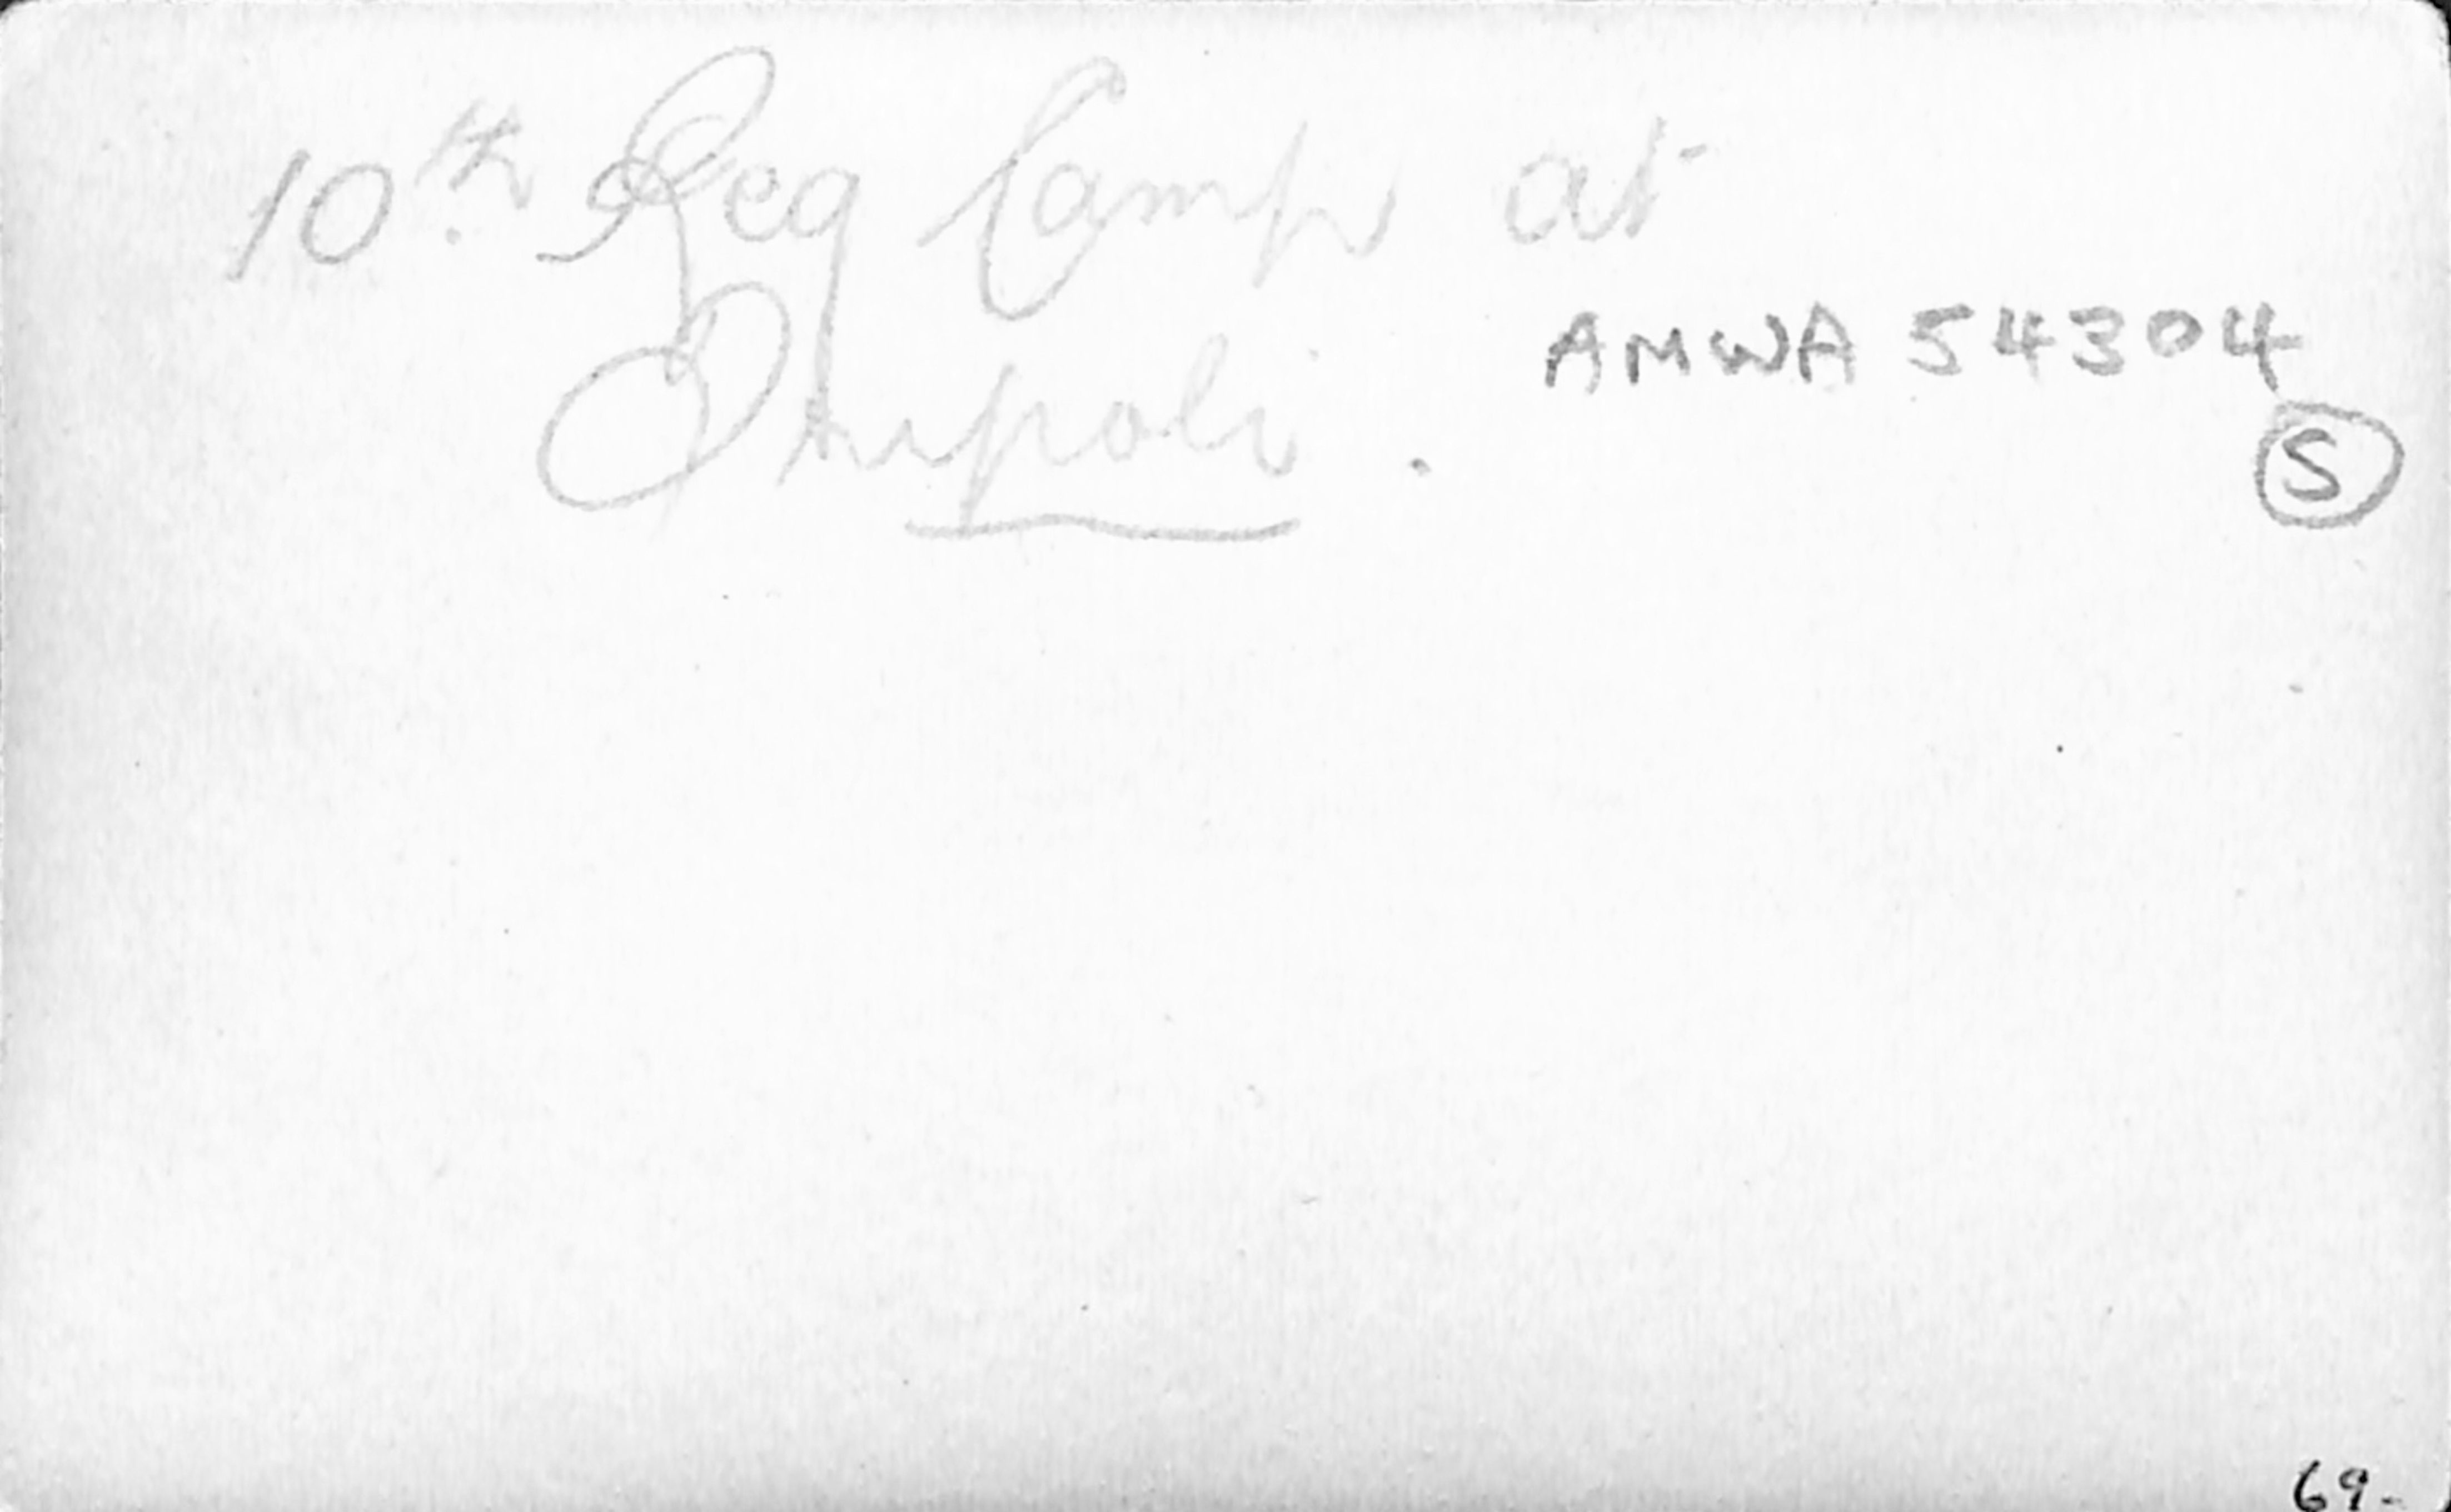 10th Reg Camp at
Tripoli.
AMWA 54304
S
69-